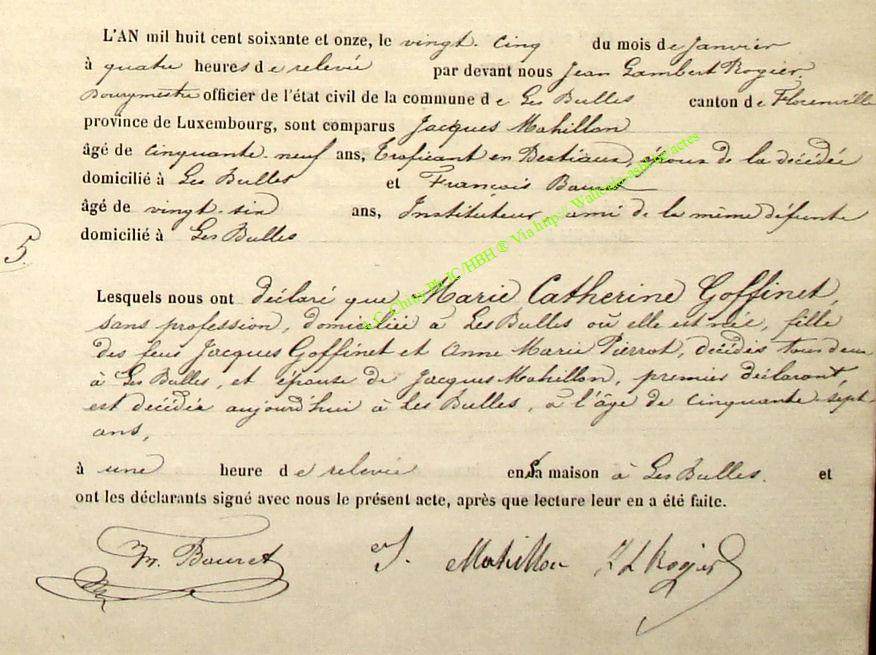 L'AN mil huit cent soixante et onze, le vingt-cinq du mois de Janvier
à quatre heures de relevée par devant nous Jean Lambert Rogier
Bourgmestre officier de l'état civil de la commune de Les Bulles canton de Florenville
province de Luxembourg, sont comparus Jacques Mahillon
âgé de cinquante-neuf ans, Traficant en Bestiaux, époux de la décédée
domicilié à Les Bulles et François Bauret
âgé de vingt-six ans, Instituteur ami de la même défunte
domicilié à Les Bulles
5.
Lesquels nous ont déclaré que Marie Catherine Goffinet,
sans profession, domiciliée à Les Bulles où elle est née, fille
des feus Jacques Goffinet et Anne Marie Pierrot, décédés tous deux
à Les Bulles, et épouse de Jacques Mahillon, premier déclarant,
est décédée aujourd'hui à Les Bulles, à l'âge de cinquante-sept
ans,
à une heure de relevée en sa maison à Les Bulles. et
ont les déclarants signé avec nous le présent acte, après que lecture leur en a été faite.
Fr. Bauret J. Mahillon J L Rogier